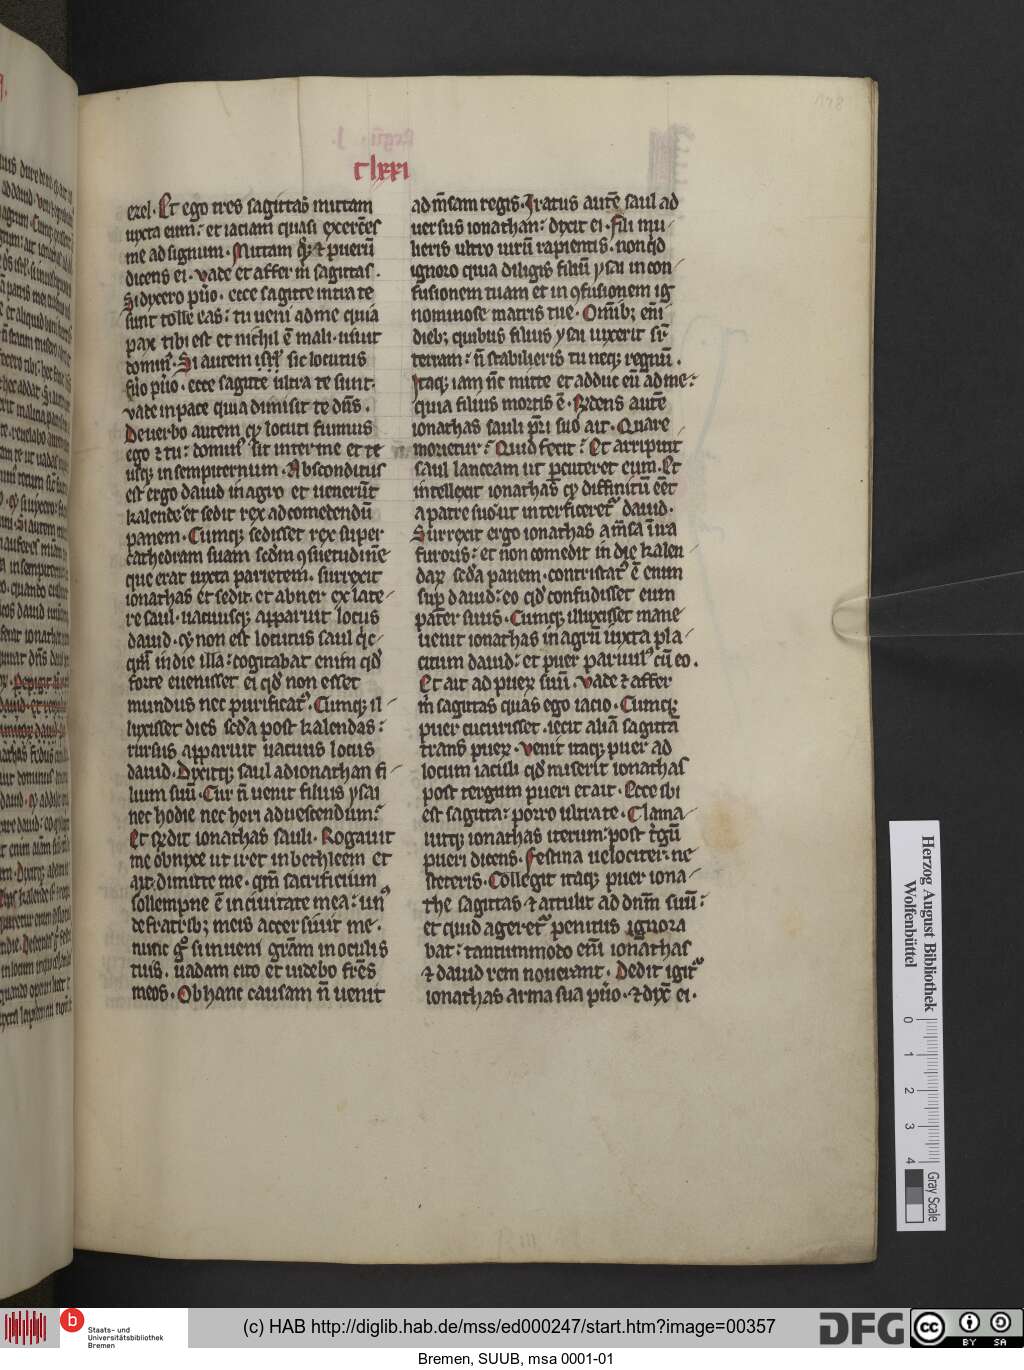 clxxi
ezel. Et ego tres sagittas mittam
iuxta eum: et iaciam quasi exercēs
me ad signum. Mittam q̨ȝ ⁊ puerū
dicens ei. vade et affer m̄ sagittas.
Si dixero pu̅o. ecce sagitte intra te
sunt tolle eas: tu ueni ad me quia
pax tibi est et nichil ē mali. uiuit
domin⁹. Si autem sic locutus
fu̅o pu̅o. ecce sagitte ultra te sunt.
vade in pace quia dimisit te dn̄s.
De uerbo autem qd̄ locuti sumus
ego ⁊ tu: domin⁹ sit inter me et te
usqȝ in sempiternum. Absconditus
est ergo dauid in agro et uenerūt
kalende et sedit rex ad comedendū
panem. Cumqȝ sedisset rex super
cathedram suam scd̄m ꝯsuetudinē
que erat iuxta parietem. surrexit
ionathas et sedit. et abner ex late-
re saul. uacuusqȝ apparuit locus
dauid. et non est locutus saul q̇c-
qm̄ in die illa: cogitabat enim qd̄
forte euenisset ei qd̄ non esset
mundus nec purificat⁹. Cumqȝ il-
luxisset dies scd̄a post kalendas:
rursus apparuit uacuus locus
dauid. Dixitqȝ saul ad ionathan fi-
lium suū. Cur n̄ uenit filius ysai
nec hodie nec heri ad uescendum:
Et respondit ionathas sauli. Rogauit
me obnixe ut iret in bethleem et
ait. dimitte me. qm̄ sacrificium
sollempne ē in ciuitate mea: un⁹
de fratribȝ meis accersiuit me.
nunc g̊ si inueni grām in oculis
tuis. uadam cito et uidebo frēs
meos. Ob hanc causam n̄ uenit
ad m̄sam regis. Iratus autē saul ad
uersus ionathan: dixit ei. Fili mu-
lieris ultro uirū rapientis. non qd̄
ignoro quia diligis filiū ysai in con-
fusionem tuam et in ꝯfusionem ig
nominose matris tue. Om̄ibȝ em̄
diebȝ quibus filius ysai uixerit sr̄
terram: n̄ stabilieris tu neqȝ regnū.
Itaqȝ iam nc̄ mitte et adduc eū ad me:
quia filius mortis ē. Rn̄dens autē
ionathas sauli pr̄i suo ait. Quare
morietur: Quid fecit: Et arripuit
saul lanceam ut p̄cuteret eum. Et
intellexit ionathas qd̄ diffinitū eēt
a patre suo ut interficeret⁹ dauid.
Surrexit ergo ionathas a m̄sa in ira
furoris: et non comedit in die kalen-
daꝝ scd̄a panem. contristat⁹ ē enim
sup̄ dauid: eo qd̄ confudisset eum
pater suus. Cumqȝ illuxisset mane
uenit ionathas in agrū iuxta pla-
citum dauid: et puer paruul⁹ cū eo.
Et ait ad pueꝝ suū. Vade ⁊ affer
m̄ sagittas quas ego iacio. Cumqȝ
puer cucurisset. iecit aliā sagittā
trans pueꝝ. Venit itaqȝ puer ad
locum iaculi qd̄ miserit ionathas
post tergum pueri et ait. Ecce ibi
est sagitta: porro ultra te. Clama-
uitqȝ ionathas iterum: post t̄gū
pueri dicens. Festina uelociter: ne
steteris. Collegit itaqȝ puer iona-
the sagittas ⁊ attulit ad dn̄m suū:
et quid ageret⁹ penitus ignora
bat: tantummodo em̄ ionathas
⁊ dauid rem nouerant. Dedit igit⁹
ionathas arma sua pu̅o. ⁊ dixt̄ ei.
Herzog August Bibliothek
Wolfenbüttel
0 1 2 3 4
Gray Scale
b
Staats- und
Universitätsbibliothek
Bremen
(c) HAB http://diglib.hab.de/mss/ed000247/start.htm?image=00357
DFG
cc BY SA
Bremen, SUUB, msa 0001-01